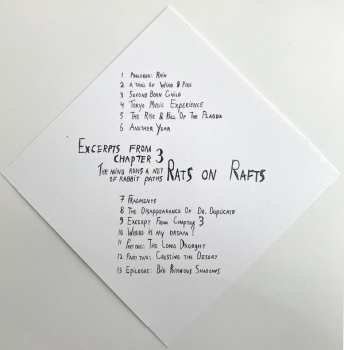 1 Prologue: Rain
2 A Trail of Wind & Fire
3 Second Born Child
4 Tokyo Music Experience
5 The Rise & Fall Of The Plague
6 Another Year
Excerpts From
Chapter 3
The Mind Runs a Net
of Rabbit Paths
Rats on Rafts
7 Fragments
8 The Disappearance Of Dr. Duplicate
9 Excerpt From Chapter 3
10 Where Is my dream?
11 Part One: The Long Drought
12 Part Two: Crossing the Desert
13 Epilogue: Big Poisonous Shadows